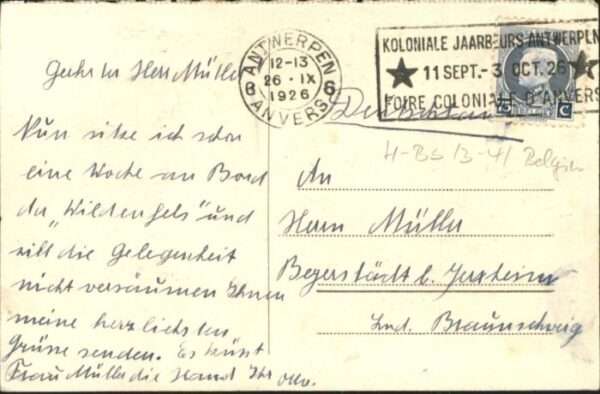 Geehrter Herr Müller
Nun sitze ich schon
eine Woche an Bord
der „Wildenfels" und
will die Gelegenheit
nicht versäumen Ihnen
meine herzlichsten
Grüsse senden. Es küsst
Frau Müller die Hand Ihr Otto.
ANTWERPEN
12-13
26 · IX
1926
6 6
ANVERS
KOLONIALE JAARBEURS ANTWERPEN
11 SEPT.-3 OCT. 26
FOIRE COLONIALE D'ANVERS
75 C
Deutschland
H-BS 13-41 Belgien
An
Herrn Müller
Beyerstädt b. Jerxheim
Lnd. Braunschweig